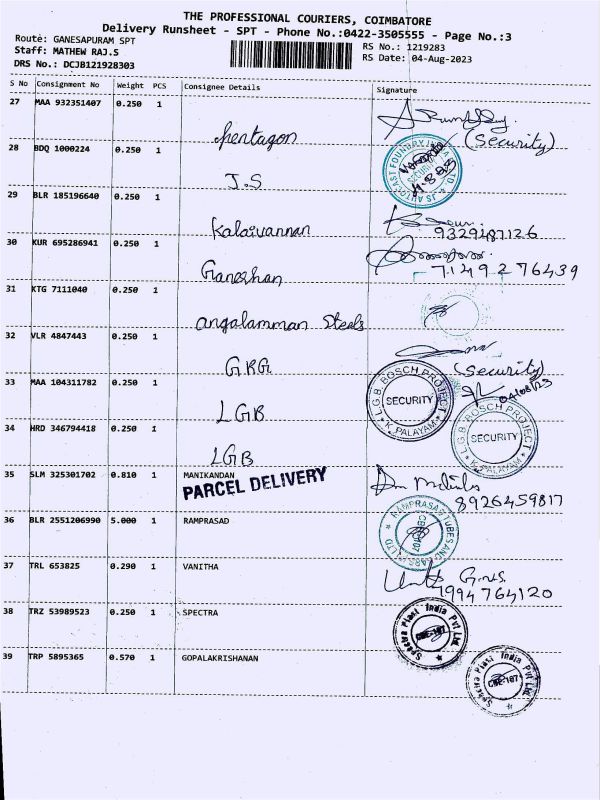 THE PROFESSIONAL COURIERS, COIMBATORE
Delivery Runsheet - SPT - Phone No.:0422-3505555 - Page No.:3
Route: GANESAPURAM SPT
RS No.: 1219283
Staff: MATHEW RAJ.S
RS Date: 04-Aug-2023
DRS No.: DCJB121928303
S No Consignment No Weight PCS Consignee Details Signature
27 MAA 932351407 0.250 1
pentagon (Security)
28 BDQ 1000224 0.250 1
J.S
29 BLR 185196640 0.250 1
Kalaivannan
9329487126
30 KUR 695286941 0.250 1
Ganeshan 7149276439
31 KTG 7111040 0.250 1
angalamman Steels
32 VLR 4847443 0.250 1
GRG (Security)
04/08/23
33 MAA 104311782 0.250 1
LGB
L.G.B. BOSCH PROJECT
SECURITY
K. PALAYAM
34 HRD 346794418 0.250 1
LGB
L.G.B. BOSCH PROJECT
SECURITY
K. PALAYAM
35 SLM 325301702 0.810 1 MANIKANDAN
PARCEL DELIVERY
8926459817
36 BLR 2551206990 5.000 1 RAMPRASAD
37 TRL 653825 0.290 1 VANITHA
9994764120
38 TRZ 53989523 0.250 1 SPECTRA
Spectra Plast India Pvt Ltd.
39 TRP 5895365 0.570 1 GOPALAKRISHANAN
Spectra Plast India Pvt Ltd.